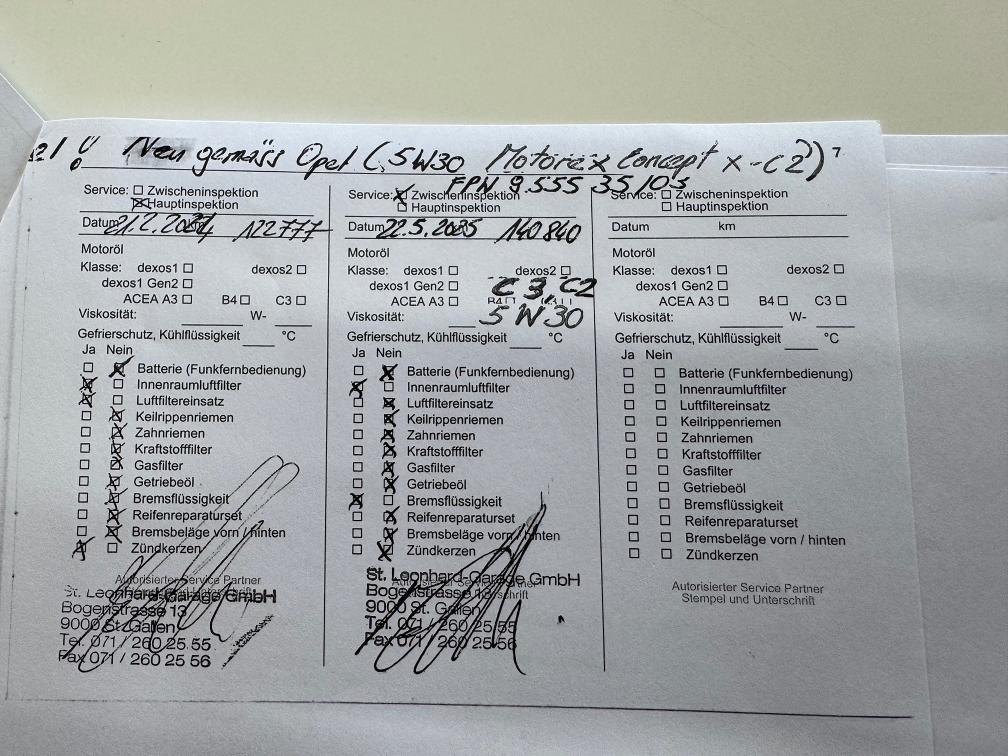 Neu gemäss Opel (5W30 Motorex Concept X-C2) 7
FPN 9.555 35/03
Service: Zwischeninspektion
Hauptinspektion
Datum 21.2. 122777
Motoröl
Klasse: dexos1 dexos2
dexos1 Gen2
ACEA A3 B4 C3
Viskosität: W-
Gefrierschutz, Kühlflüssigkeit °C
Ja Nein
Batterie (Funkfernbedienung)
Innenraumluftfilter
Luftfiltereinsatz
Keilrippenriemen
Zahnriemen
Kraftstofffilter
Gasfilter
Getriebeöl
Bremsflüssigkeit
Reifenreparaturset
Bremsbeläge vorn / hinten
Zündkerzen
Autorisierter Service Partner
St. Leonhard-Garage GmbH
Bogenstrasse 13
9000 St. Gallen
Tel. 071 / 260 25 55
Fax 071 / 260 25 56
Service: Zwischeninspektion
Hauptinspektion
Datum 22.5.2025 140840
Motoröl
Klasse: dexos1 dexos2
dexos1 Gen2 C3, C2
ACEA A3 B4
Viskosität: 5W30
Gefrierschutz, Kühlflüssigkeit °C
Ja Nein
Batterie (Funkfernbedienung)
Innenraumluftfilter
Luftfiltereinsatz
Keilrippenriemen
Zahnriemen
Kraftstofffilter
Gasfilter
Getriebeöl
Bremsflüssigkeit
Reifenreparaturset
Bremsbeläge vorn / hinten
Zündkerzen
St. Leonhard-Garage GmbH
Bogenstrasse 13
9000 St. Gallen
Tel. 071 / 260 25 55
Fax 071 / 260 25 56
Service: Zwischeninspektion
Hauptinspektion
Datum km
Motoröl
Klasse: dexos1 dexos2
dexos1 Gen2
ACEA A3 B4 C3
Viskosität: W-
Gefrierschutz, Kühlflüssigkeit °C
Ja Nein
Batterie (Funkfernbedienung)
Innenraumluftfilter
Luftfiltereinsatz
Keilrippenriemen
Zahnriemen
Kraftstofffilter
Gasfilter
Getriebeöl
Bremsflüssigkeit
Reifenreparaturset
Bremsbeläge vorn / hinten
Zündkerzen
Autorisierter Service Partner
Stempel und Unterschrift